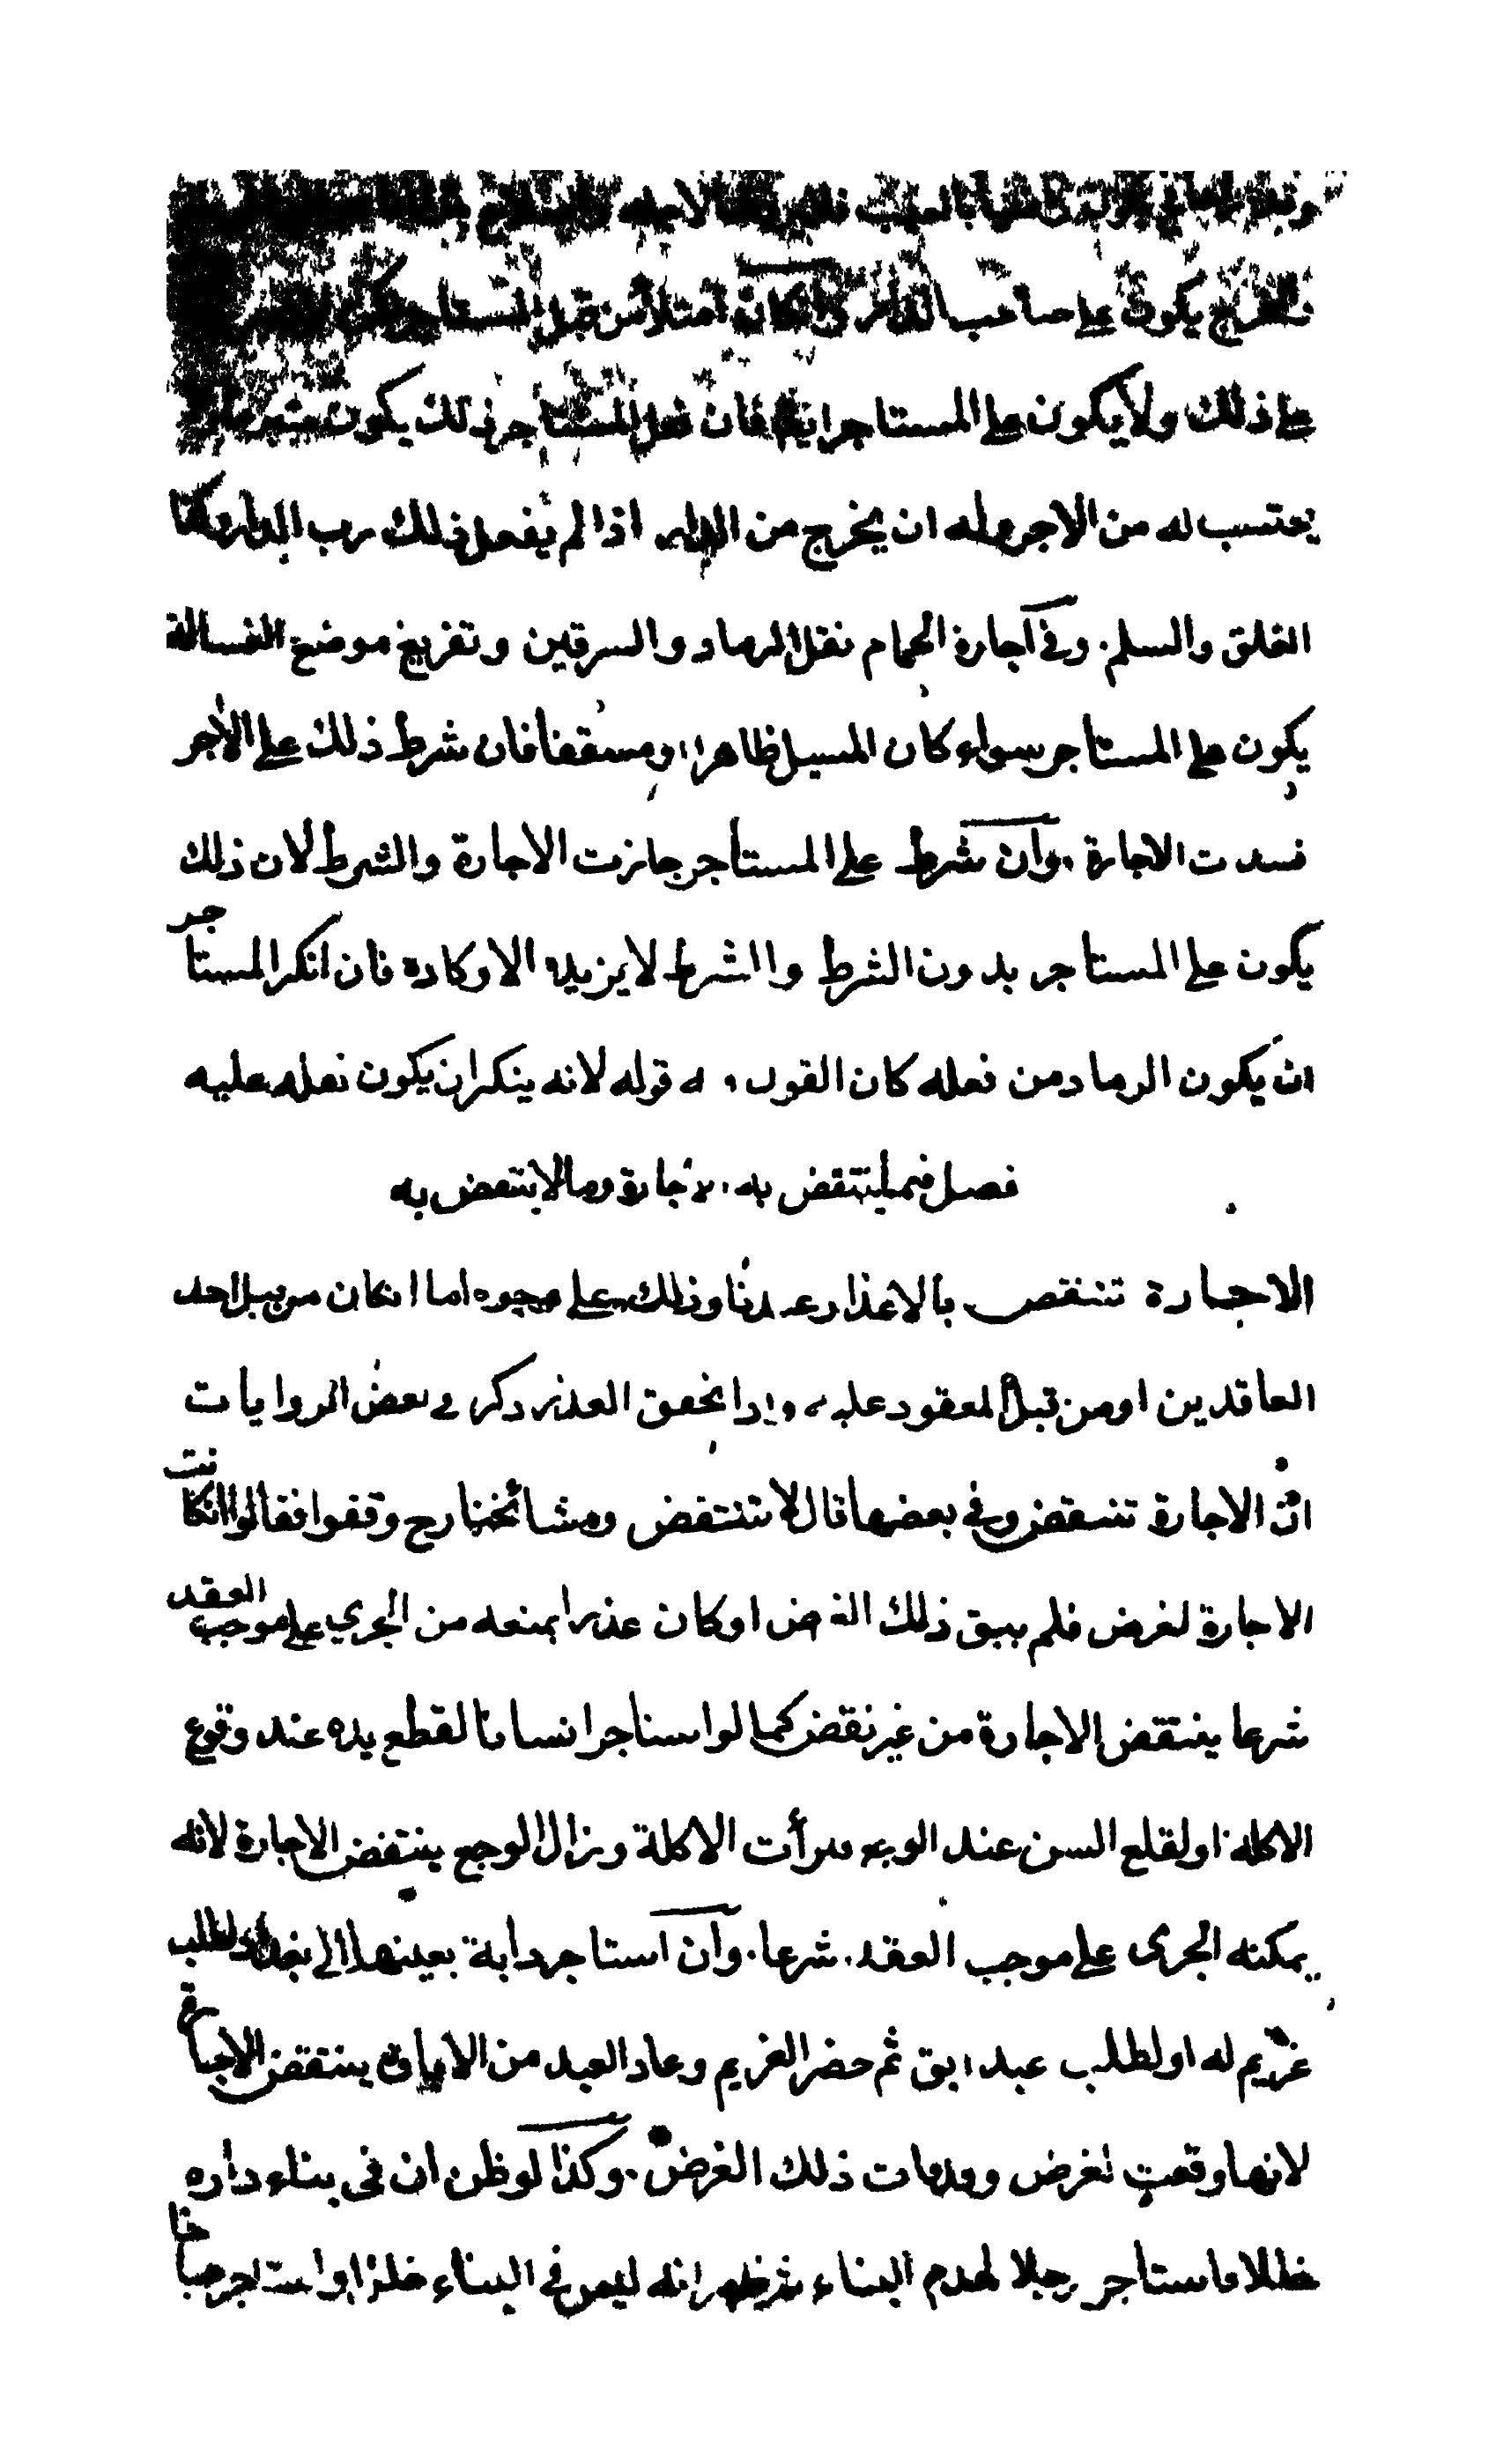 والتفريغ يكون على صاحب الدار وان كان امتلأ من قبل المستاجر
على ذلك ولا يكون على المستاجر ايضا فان فعل المستاجر ذلك يكون متبرعا
يحتسب له من الاجر وله ان يخرج من الدار اذا لم يفعل ذلك رب الدار وكذا
الغلق والسلم وفي اجارة الحمام نقل الرماد والسرقين وتفريغ موضع الغسالة
يكون على المستاجر سواء كان المسيل ظاهرا او مسقفا فان شرط ذلك على الاجر
فسدت الاجارة وان شرط على المستاجر جازت الاجارة والشرط لان ذلك
يكون على المستاجر بدون الشرط واالشرط لا يزيده الا وكادة فان انكر المستاجر
ان يكون الرماد من فعله كان القول قوله لانه ينكر ان يكون نعله عليه
فصل فيما ينتقض به الاجارة وما لا ينتقض به
الاجارة تنتقض بالاعذار عندنا وذلك على وجوه اما ان كان من قبل احد
العاقدين او من قبل المعقود عليه واذا تحقق العذر ذكر في بعض الروايات
ان الاجارة تنتقض وفي بعضها قال لا تنتقض ومشائخنا رح وقفوا فقالوا ان كانت
الاجارة لغرض فلم يبق ذلك الغرض او كان عذرا يمنعه من الجري على موجب العقد
شرعا ينتقض الاجارة من غير نقض كما لو استاجر انسانا لقطع يده عند وقوع
الاكلة او لقلع السن عند الوجع فبرأت الاكلة وزال الوجع ينتقض الاجارة لانه
يمكنه الجرى على موجب العقد شرعا وان استاجر دابة بعينها الى بغداد لطلب
غريم له او لطلب عبد ابق ثم حضر الغريم وعاد العبد من الاباق ينتقض الاجارة
لانها وقعت لغرض وقد فات ذلك الغرض وكذا لو ظن ان في بناء داره
خللا فاستاجر رجلا لهدم البناء ثم ظهر انه ليس في البناء خلل او استاجر طباخا